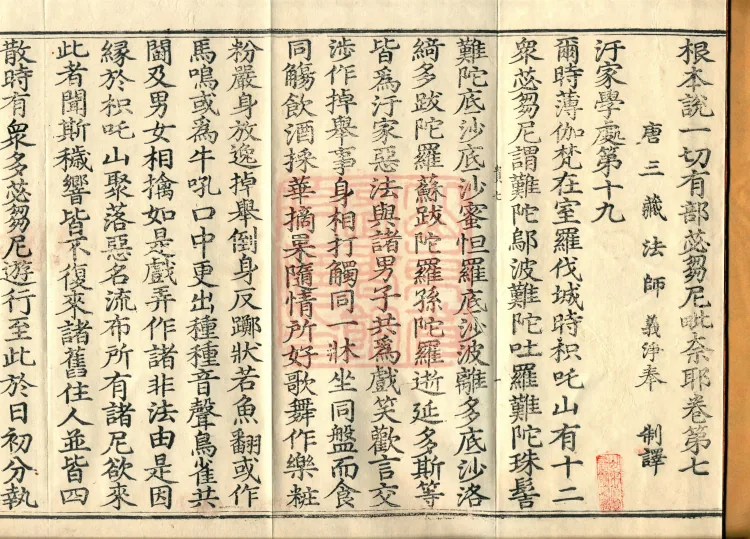 根本說一切有部苾芻尼毗柰耶卷第七
唐三藏法師義淨奉 制譯
汙家學處第十九
爾時薄伽梵在室羅伐城時枳吒山有十二
眾苾芻尼謂難陀鄔波難陀吐羅難陀珠髻
難陀底沙底沙蜜怛羅底沙波離多底沙洛
綺多跋陀羅蘇跋陀羅孫陀羅逝延多斯等
皆為汙家惡法與諸男子共為戲笑歡言交
涉作掉舉事身相打觸同一牀坐同盤而食
同觴飲酒採華摘果隨情所好歌舞作樂粧
粉嚴身放逸掉舉倒身反擲狀若魚翻或作
馬鳴或為牛吼口中更出種種音聲鳥雀共
鬪及男女相擒如是戲弄作諸非法由是因
緣於枳吒山聚落惡名流布所有諸尼欲來
此者聞斯穢響皆不復來諸舊住人並皆四
散時有眾多苾芻尼遊行至此於日初分執